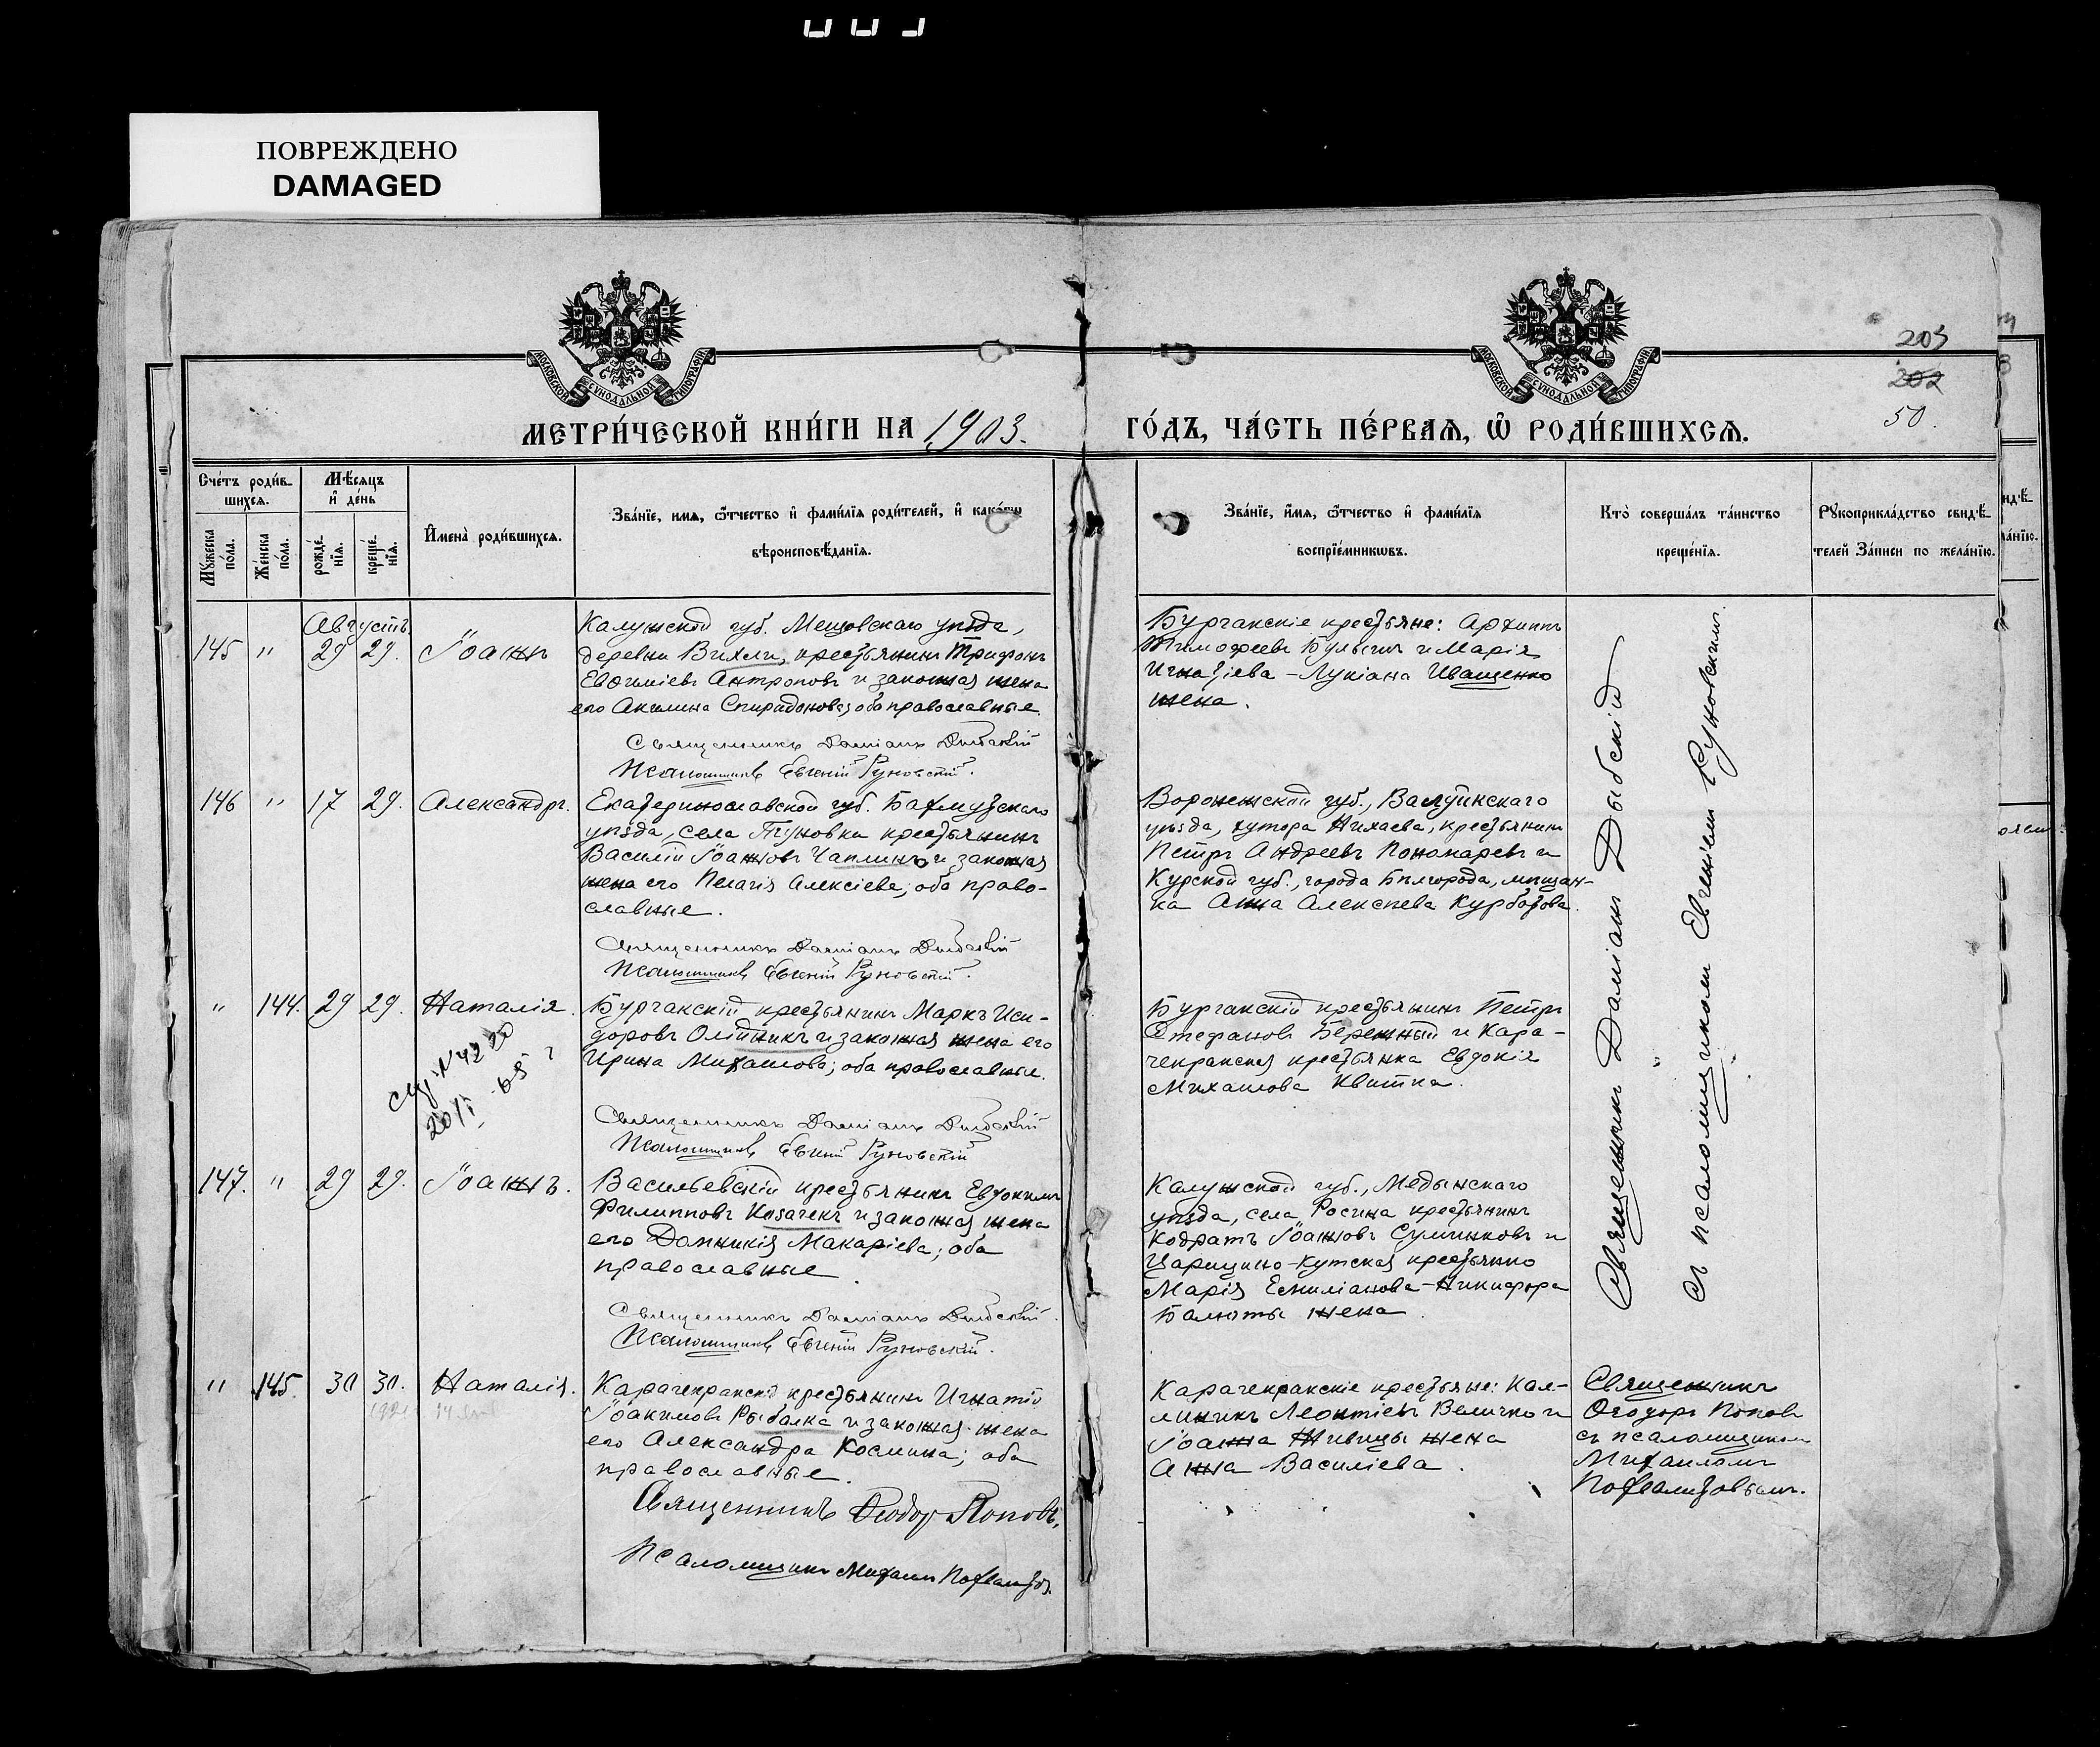 ПОВРЕЖДЕНО
DAMAGED
МОСКОВСКОЙ СѴНОДАЛЬНОЙ ТИПОГРАФІИ
МОСКОВСКОЙ СѴНОДАЛЬНОЙ ТИПОГРАФІИ
203
202
50.
МЕТРИ́ЧЕСКОЙ КНИ́ГИ НА 1903.
ГО́ДЪ, ЧА́СТЬ ПЕ́РВАЯ, Ѡ РОДИ́ВШИХСЯ.
Сче́тъ роди́в-
шихся.
Мꙋ́жеска по́ла.
Же́нска по́ла.
Мѣ́сяцъ
и҆ де́нь
рожде́нїя.
креще́нїя.
И҆мена̀ роди́вшихся.
Зва́нїе, имя, ѻ҆́тчество и҆ фами́лїя роди́телей, и҆ како́гѡ
вѣроисповѣ́данїя.
Зва́нїе, и҆́мя, ѻ҆́тчество и҆ фами́лїя
воспрїе́мникѡвъ.
Кто̀ соверша́лъ та́инство
креще́нїя.
Рꙋкоприкла́дство свидѣ́-
телей За́писи по жела́нїю.
Августъ
145 " 29 29. Іоаннъ
Калужской губ. Мещовскаго уѣзда,
деревни Вихли, крестьянинъ Трифонъ
Евѳиміевъ Антроповъ и законная жена
его Акилина Спиридонова; оба православные.
Священникъ Даміанъ Дыбскій
Псаломщикъ Евгеній Руновскій.
Бурчакскіе крестьяне: Архиппъ
Тимофеевъ Булыги и Марія
Игнатіева - Лукіана Иващенко
жена.
146 " 17 29. Александръ.
Екатеринославской губ. Бахмутскаго
уѣзда, села Труновки крестьянинъ
Василій Іоанновъ Чаплинъ и законная
жена его Пелагія Алексіева; оба право-
славные.
Священникъ Даміанъ Дыбскій
Псаломщикъ Евгеній Руновскій.
Воронежской губ., Валуйскаго
уѣзда, хутора Нихаева, крестьянинъ
Петръ Андреевъ Пономаревъ и
Курской губ., города Бѣлгорода, мѣщан-
ка Анна Алексѣева Курбатова.
" 144. 29 29. Наталія.
Бурчакскій крестьянинъ Маркъ Иси-
доровъ Олійникъ и законная жена его
Ирина Михаилова; оба православные.
Священникъ Даміанъ Дыбскій
Псаломщикъ Евгеній Руновскій
Бурчакскій крестьянинъ Петръ
Стефановъ Бережный и Кара-
чекракская крестьянка Евдокія
Михаилова Квитка.
147. " 29 29. Іоаннъ.
Васильевскій крестьянинъ Евдокимъ
Филипповъ Козачекъ и законная жена
его Домникія Макаріева; оба
православные.
Священникъ Даміанъ Дыбскій.
Псаломщикъ Евгеній Руновскій.
Калужской губ., Медынскаго
уѣзда, села Росина крестьянинъ
Кодратъ Іоанновъ Сулимковъ и
Царицыно-Кутская крестьянка
Марія Емиліанова - Никифора
Балюты жена.
Священникъ Даміанъ Дыбскій
съ псаломщикомъ Евгеніемъ Руновскимъ.
" 145. 30 30. Наталія.
Карачекракскій крестьянинъ Игнатій
Іоакимовъ Рыбалка и законная жена
его Александра Космина; оба
православные.
Священникъ Ѳеодоръ Поповъ.
Псаломщикъ Михаилъ
Карачекракские крестьяне: Кал-
линикъ Леонтіевъ Величко и
Іоанна Живицы жена
Анна Василіева.
Священникъ
Ѳеодоръ Поповъ
съ псаломщикомъ
Михаиломъ